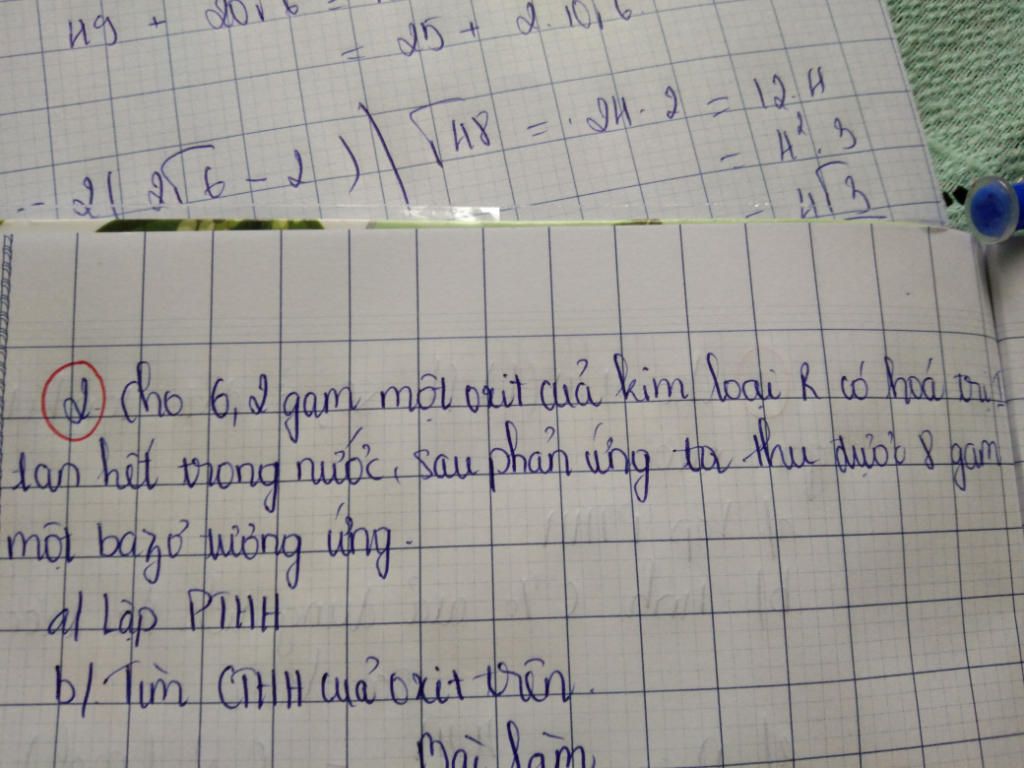 49 + 20√6 =
= 25 + 2.10√6
-- 2( 2√6 - 2 )
√48 = .24.2 = 12.4
= 4².3
= 4√3
2 Cho 6,2 gam một oxit của kim loại R có hoá trị
tan hết trong nước, sau phản ứng ta thu được 8 gam
một bazơ tương ứng.
a/ Lập PTHH
b/. Tìm CTHH của oxit trên.
Bài làm